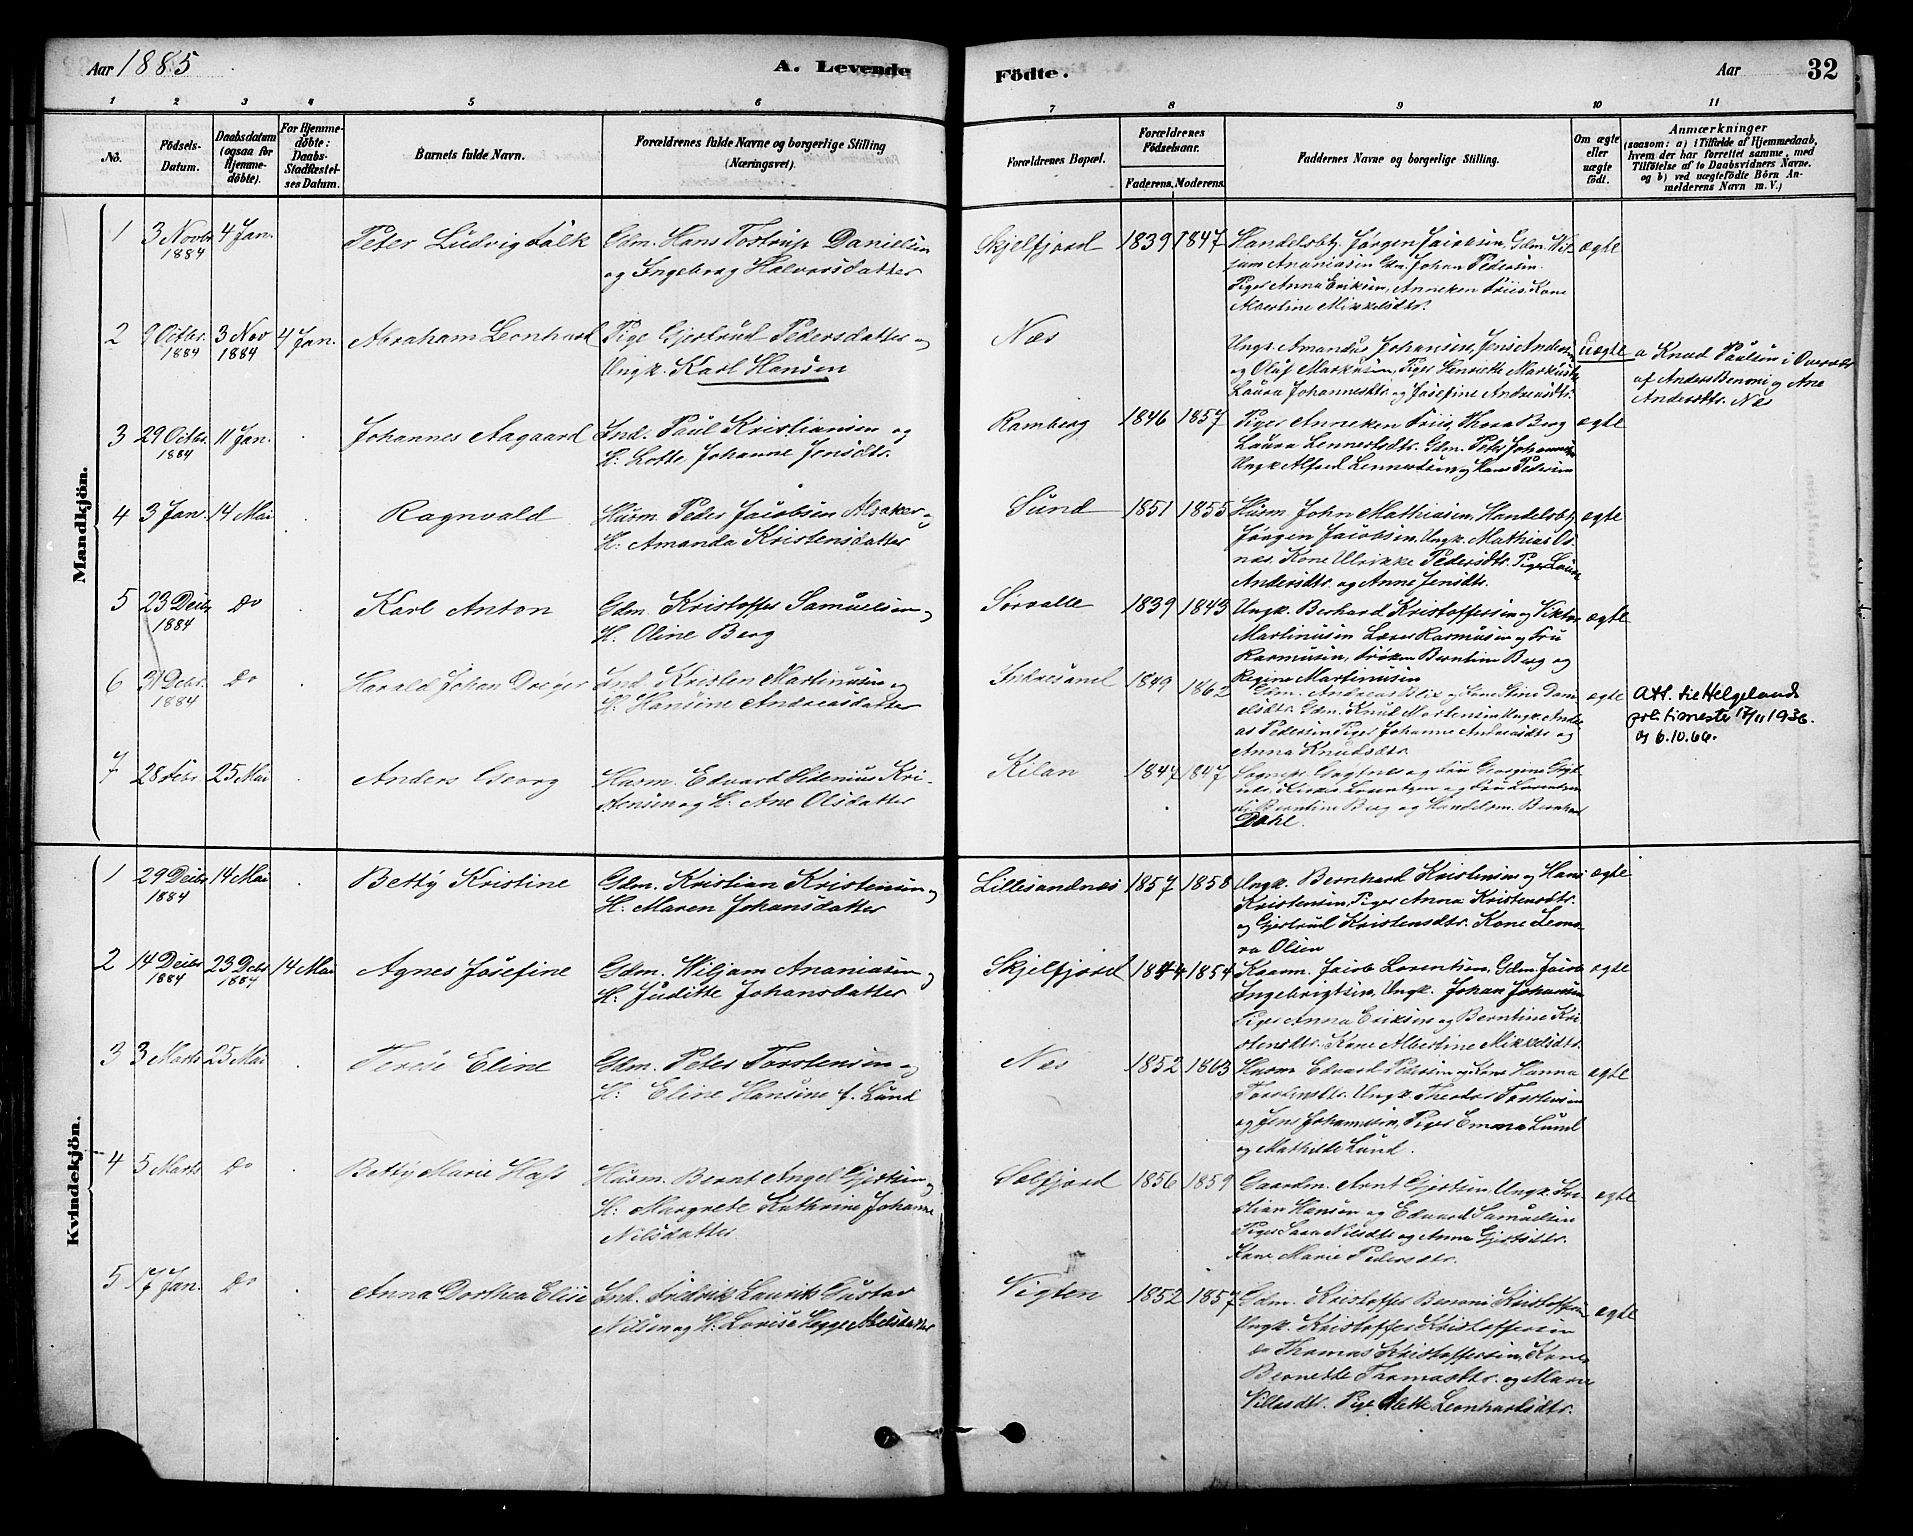 Aar 1885
A. Levende
Födte.
Aar
32
1 2 3 4 5 6 7 8 9 10 11
No.
Födsels-
Datum.
Daabsdatum
(ogsaa for
Hjemme-
døbte).
For Hjemme-
døbte:
Daabs-
Stadfæstel-
ses Datum.
Barnets fulde Navn.
Forældrenes fulde Navne og borgerlige Stilling
(Næringsvei).
Forældrenes Bopæl.
Forældrenes
Födselsaar.
Faderens. Moderens.
Faddernes Navne og borgerlige Stilling.
Om ægte
eller
uægte
födt.
Anmærkninger
(saasom: a) i Tilfælde af Hjemmedaab,
hvem der har forrettet samme, med
Tilföielse af to Daabsvidners Navne.
og b) ved uægtefödte Börn An-
melderens Navn m. V.)
Mandkjön.
1 3 Novbr 1884 4 Jan. Peter Ludvig Falk
Gdm. Hans Tostrup Danielsen
og Ingeborg Halvorsdatter
Skjelfjord 1839 1847
Handelsbtj. Jørgen Jacobsen, Gdm. Wil-
jam Ananiasen Gdm. Johan Pedersen.
Piger Anna Eriksen, Anneken Friis. Kone
Albertine Mikkelsdtr.
ægte
2 9 Octbr. 1884 3 Nov 1884 4 Jan. Abraham Leonhard
Pige Gjertrud Pedersdatter og
Ungk. Karl Hansen
Næs
Ungk. Amandus Johansen, Jens Anders
og Oluf Markusen, Piger Henrette Markusdtr
Laura Johannesdtr og Josefine Andreasdtr.
uægte
a Knud Paulsen i
af Anders Benoni og Ane
Andersdtr. Næs
3 29 Octbr. 1884 11 Jan. Johannes Aagaard
Ind. Paul Kristiansen og
H. Lotte Johanne Jensdtr.
Ramberg 1846 1857
Piger Anneken Friis, Thora Berg
Laura Lennertsdtr. Gdm. Peter Johannesen
Ungk Alfred Lennertsen og Hans Pedersen
ægte
4 3 Jan. 14 Mai Ragnvald
Husm Peder Jacobsen Alsaker og
H. Amanda Kristensdatter
Sund 1851 1855
Husm John Mathiasen, Handelsbtj
Jørgen Jacobsen, Ungk. Mathias
Kone Ulrikke Pedersdtr. Piger Laura
Andersdtr og Anne Jensdtr.
ægte
5 23 Decbr 1884 Do Karl Anton
Gdm. Kristoffer Samuelsen og
H. Oline Berg
Sørvalle 1839 1843
Ungk. Berhard Kristoffersen og Viktor
Martinusen Lærer Rasmusen og Fru
Rasmusen, Frøken Berntine Berg og
Regine Martinusen
ægte
6 31 Debr. 1884 Do Harald Johan Dreyer
Ind. Kristen Martinusen og
H. Hansine Andreasdatter
1849 1862
Gdm. Andreas Blix og Kone Stine Dani-
elsdtr. Gdm. Knud Mortensen Ungk. Andre-
as Pedersen Piger Johanne Andreasdtr og
Anna Knudsdtr.
ægte
Att. til Helgeland
politimester 17/11 1936.
og 6.10.66.
7 28 Febr. 25 Mai Anders Georg
Husm. Edvard Hdenius Kri-
stensen og H. Ane Olsdatter
Kilan 1847 1847
og Fru Georgine
Lorentzen og Fru Lorentzen
Berntine Berg og Handelsm. Bernhard
Dahl.
Kvindekjön.
1 29 Decbr 1884 14 Mai Betty Kristine
Gdm. Kristian Kristensen og
H. Maren Johansdatter
Lillesandnæs 1857 1858
Ungk. Bernhard Kristensen og Hans
Kristensen, Piger Anna Kristensdtr.
og Gjertrud Kristensdtr. Kone Leono-
ra Olsen
ægte
2 14 Decbr 1884 23 Debr 1884 14 Mai Agnes Josefine
Gdm. Wiljam Ananiasen og
H. Juditte Johansdatter
Skjelfjord 1844 1854
Kaarm. Jacob Lorentsen, Gdm. Jacob
Ingebrigtsen, Ungk. Johan Johansen
Piger Anna Eriksen og Berntine Kri-
stensdtr. Kone Albertine Mikkelsdtr.
ægte
3 3 Marts 25 Mai Terese Eline
Gdm. Peter Torstensen og
H. Eline Hansine f. Lund
Næs 1852 1863
Husm Edvard Pedersen og Kone Hanna
Torstensdtr. Ungk. Theodor Torstensen
og Jens Johannesen, Piger Emma Lund
og Mathilde Lund.
ægte
4 5 Marts Do Betty Marie Hass
Husm. Bernt Angel Gjertsen og
H. Margrete Kathrine Johanne
Nilsdatter
Selfjord 1856 1859
Gaardm. Arnt Gjertsen Ungk. Kri-
stian Hansen og Edvard Samuelsen
Piger Sara Nilsdtr og Anna Gjertsdtr.
Kone Marie Pedersdtr.
ægte
5 17 Jan. Do Anna Dorthea Elise
Ind. Fredrik Laurits Gustav
Nilsen og H. Lovise Hegge Nilsdatter
Vigten 1852 1857
Gdm. Kristoffer Benoni Kristoffersen
Ungk. Kristoffer Kristoffersen
Do Thomas Kristoffersen, Kone
Bernette Thomasdtr. og Maren
Nilsdtr. Pige Alette Leonhartsdtr.
ægte